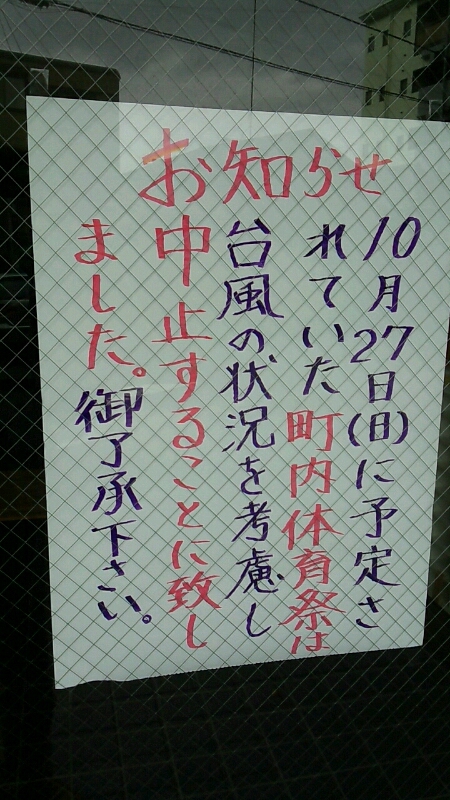 お知らせ
10月27日(日)に予定さ
れていた町内体育祭は
台風の状況を考慮し
中止することに致し
ました。御了承下さい。